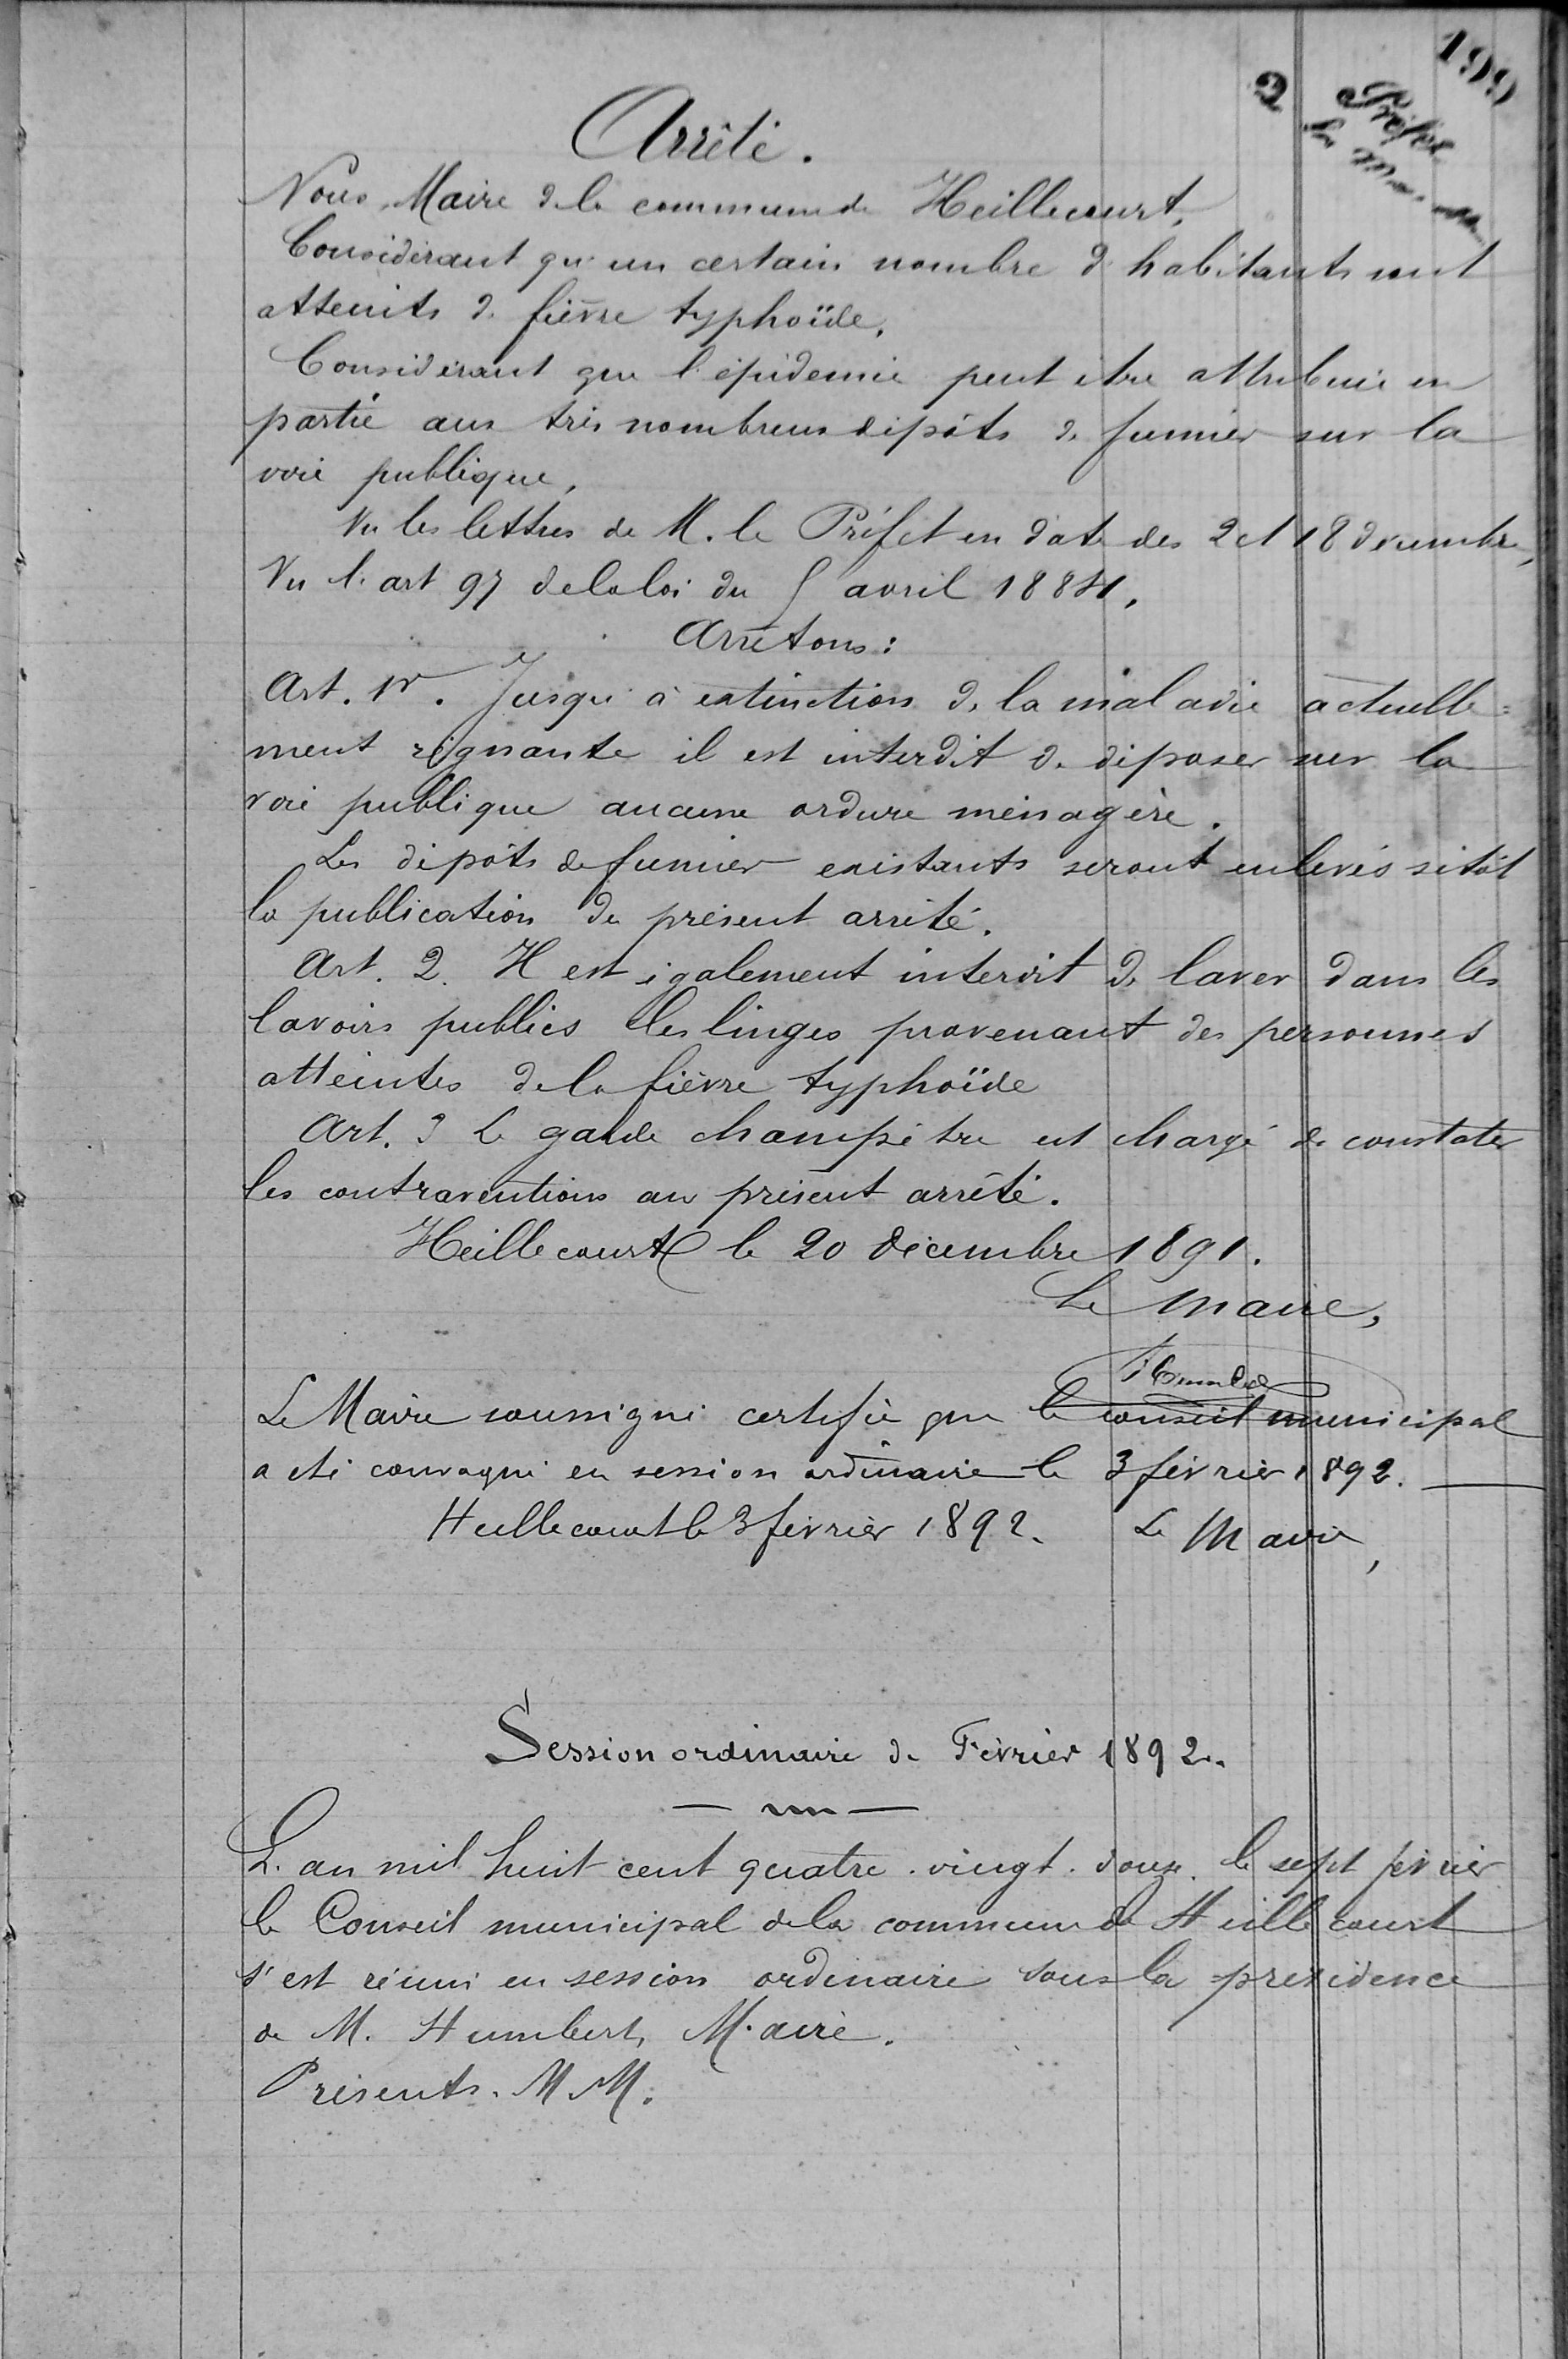 199
2
Préfet
Arrêté.
Nous, Maire de la commune de Heillecourt,
Considérant qu'un certain nombre d'habitants sont
atteints de fièvre typhoïde,
Considérant que l'épidémie peut être attribuée en
partie aux très nombreux dépôts de fumier sur la
voie publique,
Vu les lettres de M. le Préfet en date des 2 et 18 décembre,
Vu l'art 97 de la loi du 5 avril 1884,
Arrêtons:
Art. 1er. Jusqu'à extinction de la maladie actuelle=
ment régnante il est interdit de déposer sur la
voie publique aucune ordure ménagère.
Les dépôts de fumier existants seront enlevés sitôt
la publication du présent arrêté.
Art. 2. Il est également interdit de laver dans les
lavoirs publics les linges provenant des personnes
atteintes de la fièvre typhoïde
Art. 3 Le garde champêtre est chargé de constater
les contraventions au présent arrêté.
Heillecourt le 20 décembre 1891.
Le Maire,
Humbert
Le Maire soussigné certifie que le conseil municipal
a été convoqué en session ordinaire le 3 février 1892.
Heillecourt le 3 février 1892. Le Maire,
Session ordinaire de Février 1892.
L'an mil huit cent quatre-vingt-douze, le sept février
le Conseil municipal de la commune de Heillecourt
s'est réuni en session ordinaire sous la présidence
de M. Humbert, Maire.
Présents. MM.